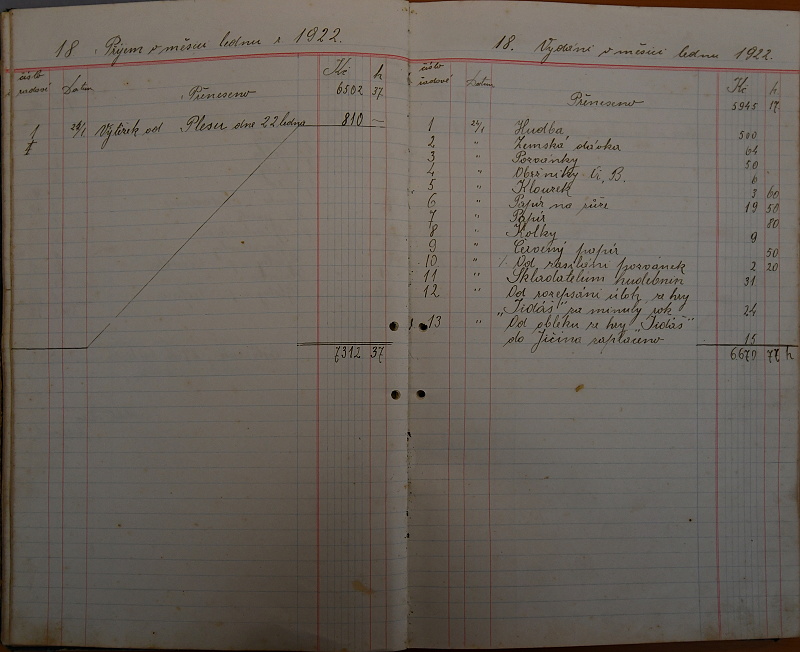 18 Příjem v měsíci lednu r 1922.
číslo řadové Datum Kč h
Přeneseno 6502 37
1 24/1 Výtěžek od Plesu dne 22 ledna 810 —
7312 37
18. Vydání v měsíci lednu 1922.
číslo řadové Datum Kč h
Přeneseno 5945 17
1 24/1 Hudba 500
2 " Zemská dávka 64
3 " Pozvánky 50
4 " Obřsníky A, B. 6
5 " Klourek 3 60
6 " Papír na růže 19 50
7 " Papír 80
8 " Kolky 9
9 " Červený papír 50
10 " Od rasílání pozvánek 2 20
11 " Skladatelům hudebnin 31
12 " Od rozepsání úloh ze hry
"Jidáš" za minulý rok 24
13 " Od obleku ze hry "Jidáš"
do Jičína zaplaceno 15
6670 77 h